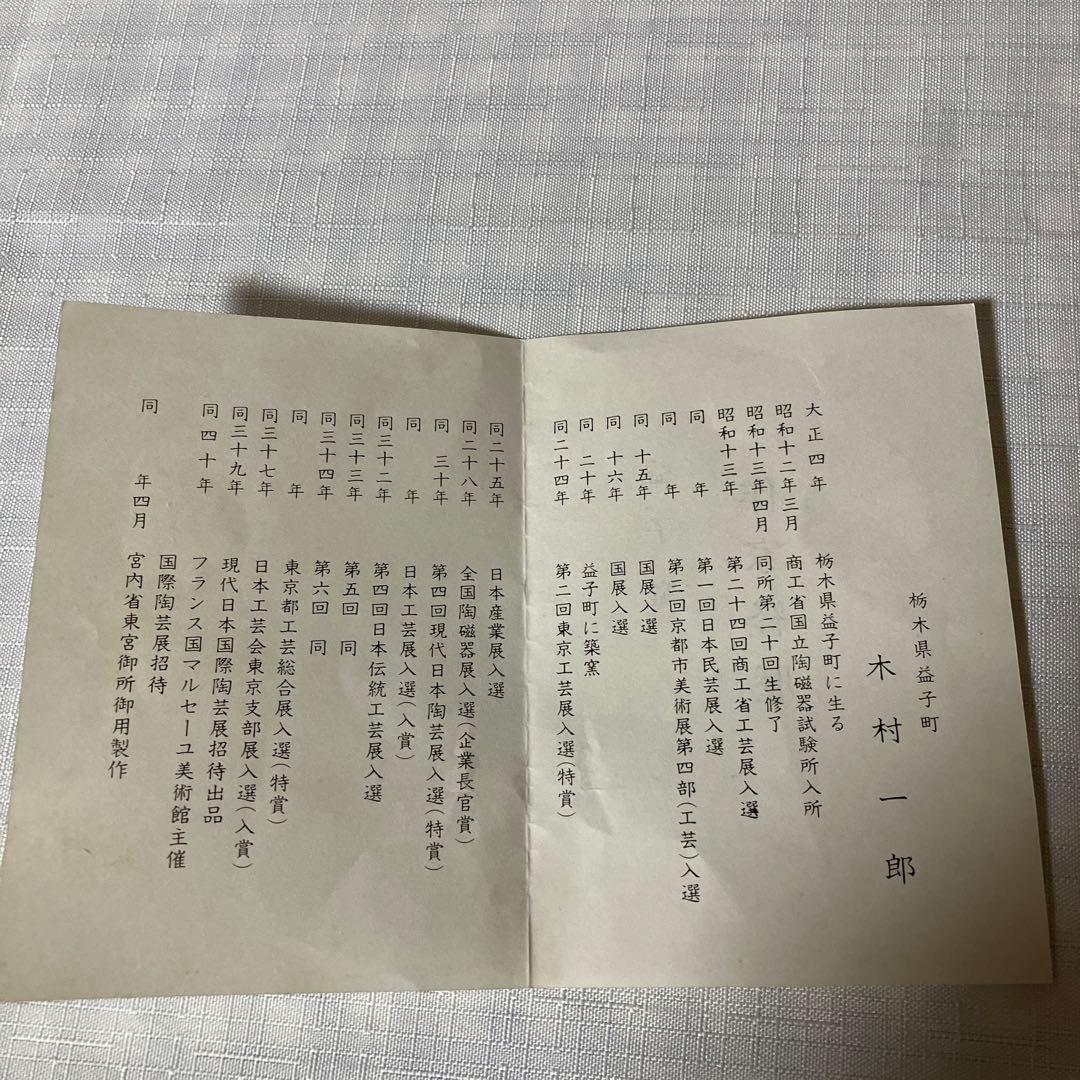 栃木県益子町
木村一郎
大正四年 栃木県益子町に生る
昭和十二年三月 商工省国立陶磁器試験所入所
昭和十三年四月 同所第二十回生修了
昭和十三年 第二十四回商工省工芸展入選
同 年 第一回日本民芸展入選
同 年 第三回京都市美術展第四部(工芸)入選
同 十五年 国展入選
同 十六年 国展入選
同 二十年 益子町に築窯
同二十四年 第二回東京工芸展入選(特賞)
同二十五年 日本産業展入選
同二十八年 全国陶磁器展入選(企業長官賞)
同 三十年 第四回現代日本陶芸展入選(特賞)
同 年 日本工芸展入選(入賞)
同三十二年 第四回日本伝統工芸展入選
同三十三年 第五回 同
同三十四年 第六回 同
同 年 東京都工芸総合展入選(特賞)
同三十七年 日本工芸会東京支部展入選(入賞)
同三十九年 現代日本国際陶芸展招待出品
同 四十年 フランス国マルセーユ美術館主催
国際陶芸展招待
同 年四月 宮内省東宮御所御用製作